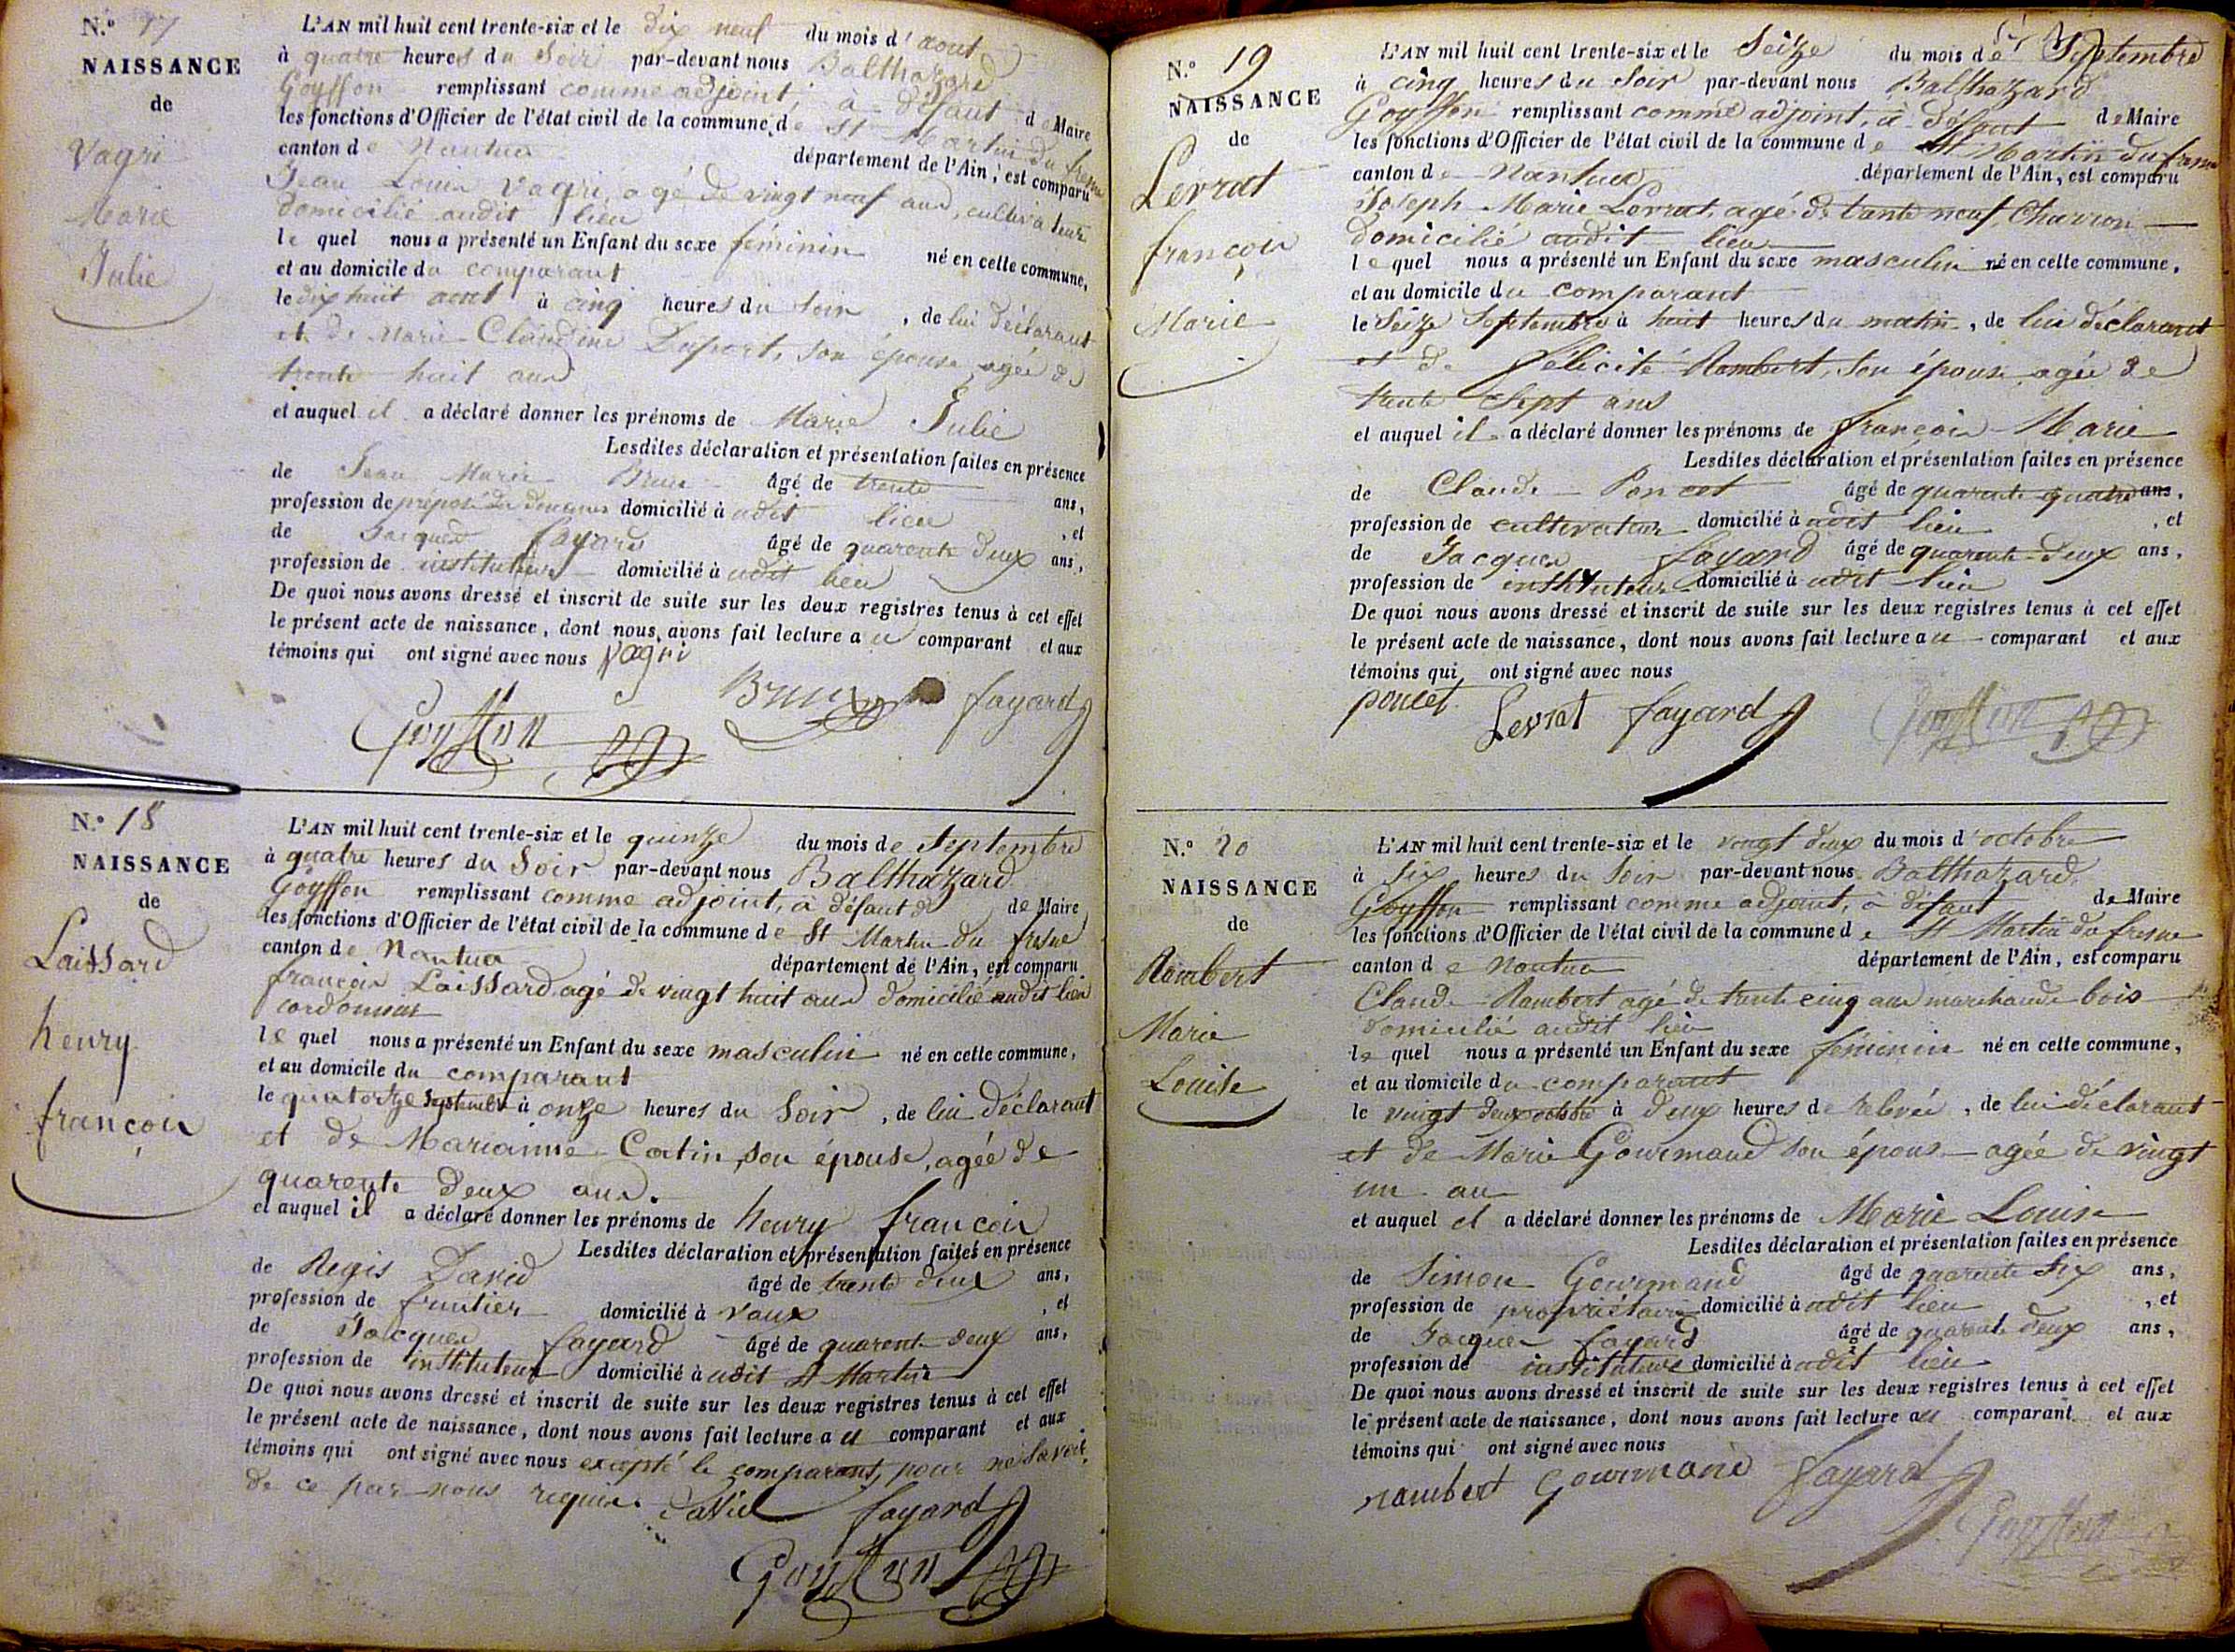 N.° 17
NAISSANCE
de
Vagri
Marie
Julie
L'AN mil huit cent trente-six et le dix neuf du mois d'aout
à quatre heures du Soir par-devant nous Balthazard
Goyffon remplissant comme adjoint, à défaut de Maire
les fonctions d'Officier de l'état civil de la commune de St Martin du fresne
canton de Nantua département de l'Ain, est comparu
Jean Louis Vagri, agé de vingt neuf ans, cultivateur
domicilié audit lieu
le quel nous a présenté un Enfant du sexe féminin né en cette commune,
et au domicile du comparant
le dix huit aout à cinq heures du Soir, de lui déclarant
et de Marie Claudine Duport, son épouse, agée de
trente huit ans
et auquel il a déclaré donner les prénoms de Marie Julie
Lesdites déclaration et présentation faites en présence
de Jean Marie Brun âgé de trente ans,
profession de préposé des douanes domicilié à udit lieu, et
de Jacques fayard âgé de quarente deux ans,
profession de instituteur domicilié à udit lieu
De quoi nous avons dressé et inscrit de suite sur les deux registres tenus à cet effet
le présent acte de naissance, dont nous avons fait lecture au comparant et aux
témoins qui ont signé avec nous Vagri
Brun fayard
Goyffon
N.° 18
NAISSANCE
de
Laissard
henry
françois
L'AN mil huit cent trente-six et le quinze du mois de Septembre
à quatre heures du Soir par-devant nous Balthazard
Goyffon remplissant comme adjoint, à défaut d de Maire
les fonctions d'Officier de l'état civil de la commune de St Martin du fresne
canton de Nantua département de l'Ain, est comparu
françois Laissard agé de vingt huit ans domicilié audit lieu
cordonnier
le quel nous a présenté un Enfant du sexe masculin né en cette commune,
et au domicile du comparant
le quatorze Septembre à onze heures du Soir, de lui déclarant
et de Marianne Catin, son épouse, agée de
quarente deux ans.
et auquel il a déclaré donner les prénoms de henry françois
Lesdites déclaration et présentation faites en présence
de Regis David âgé de trente deux ans,
profession de fruitier domicilié à Vaux, et
de Jacques fayard âgé de quarente deux ans,
profession de instituteur domicilié à udit St Martin
De quoi nous avons dressé et inscrit de suite sur les deux registres tenus à cet effet
le présent acte de naissance, dont nous avons fait lecture au comparant et aux
témoins qui ont signé avec nous excepté le comparant, pour ne savoir,
de ce par nous requis. David fayard
Goyffon
N.° 19
NAISSANCE
de
Levrat
françois
Marie
L'AN mil huit cent trente-six et le Seize du mois de Septembre
à cinq heures du Soir par-devant nous Balthazard
Goyffon remplissant comme adjoint, à défaut de Maire
les fonctions d'Officier de l'état civil de la commune de St Martin du fresne
canton de Nantua département de l'Ain, est comparu
Joseph Marie Levrat, agé de trante neuf, Charron
domicilié audit lieu
le quel nous a présenté un Enfant du sexe masculin né en cette commune,
et au domicile du comparant
le Seize Septembre à huit heures du matin, de lui déclarant
et de félicité Rambert, son épouse, agée de
trente Sept ans
et auquel il a déclaré donner les prénoms de françois Marie
Lesdites déclaration et présentation faites en présence
de Claude Poncet âgé de quarente quatre ans,
profession de cultivateur domicilié à udit lieu, et
de Jacques fayard âgé de quarente deux ans,
profession de instituteur domicilié à udit lieu
De quoi nous avons dressé et inscrit de suite sur les deux registres tenus à cet effet
le présent acte de naissance, dont nous avons fait lecture au comparant et aux
témoins qui ont signé avec nous
poncet Levrat fayard Goyffon
N.° 20
NAISSANCE
de
Rambert
Marie
Louise
L'AN mil huit cent trente-six et le vingt deux du mois d'octobre
à six heures du Soir par-devant nous Balthazard
Goyffon remplissant comme adjoint, à défaut de Maire
les fonctions d'Officier de l'état civil de la commune de St Martin du fresne
canton de Nantua département de l'Ain, est comparu
Claude Rambert agé de trente cinq ans marchand de bois
domicilié audit lieu
le quel nous a présenté un Enfant du sexe féminin né en cette commune,
et au domicile du comparant
le vingt deux octobre à deux heures de relevée, de lui déclarant
et de Marie Gourmand son épouse agée de vingt
un an
et auquel il a déclaré donner les prénoms de Marie Louise
Lesdites déclaration et présentation faites en présence
de Simon Gourmand âgé de quarente six ans,
profession de propriétaire domicilié à udit lieu, et
de Jacques fayard âgé de quarente deux ans,
profession de instituteur domicilié à udit lieu
De quoi nous avons dressé et inscrit de suite sur les deux registres tenus à cet effet
le présent acte de naissance, dont nous avons fait lecture au comparant et aux
témoins qui ont signé avec nous
rambert Gourmand fayard
Goyffon